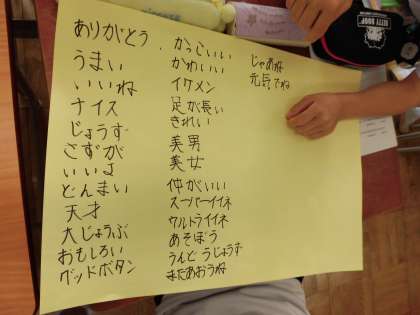 ありがとう
うまい
いいね
ナイス
じょうず
さすが
いいよ
どんまい
天才
大じょうぶ
おもしろい
グッドボタン
かっこいい
かわいい
イケメン
足が長い
きれい
美男
美女
仲がいい
スーパーイイネ
ウルトライイネ
あそぼう
うんどうじょうず
またあおうね
じゃあね
元気でね